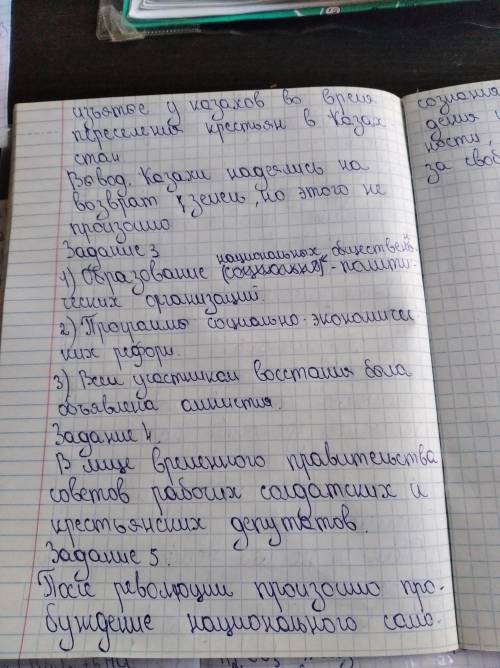 изъятые у казахов во время
переселения крестьян в Казах
стан
Вывод. Казахи надеялись на
возврат земель, но этого не
произошло
Задание 3
национальных обществен
1) Образование (социально) - полити-
ческих организаций.
2) Программы социально-экономичес
ких реформ
3) Всем участникам восстания была
объявлена амнистия.
Задание 4.
В лице временного правительства
советов рабочих солдатских и
крестьянских депутатов.
Задание 5.
После революции произошло про-
буждение национального само-
сознания
дения
ности,
за сво